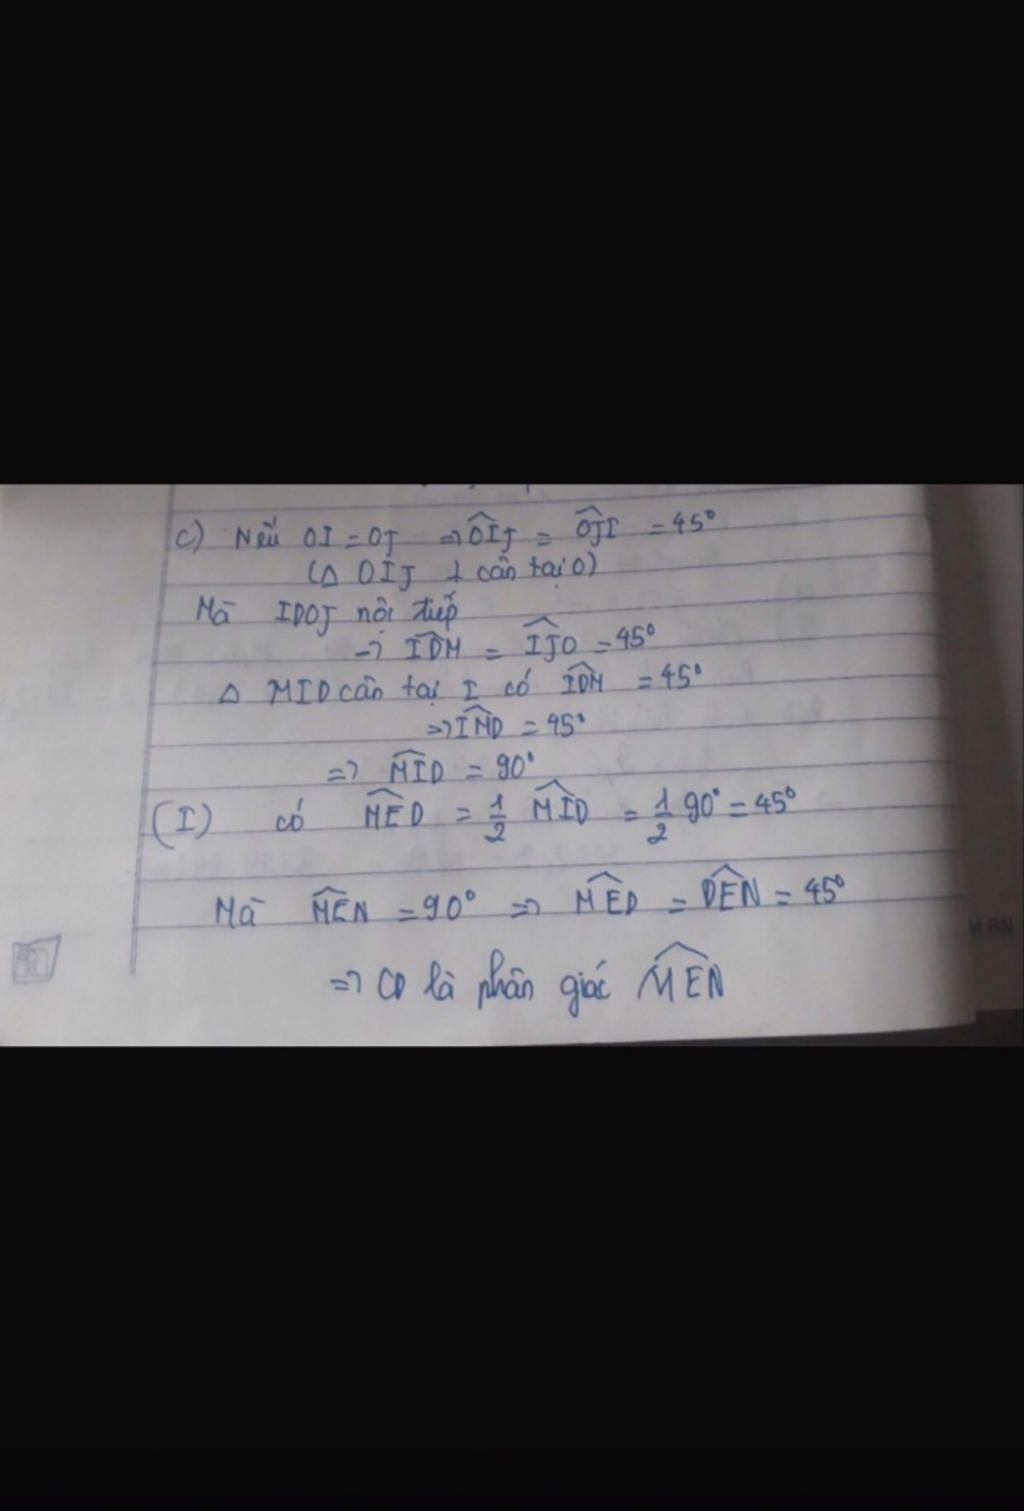 c) Nếu OI = OJ => \widehat{OIJ} = \widehat{OJI} = 45°
(Δ OIJ ⊥ cân tại O)
Mà IDOJ nội tiếp
-> \widehat{IDM} = \widehat{IJO} = 45°
Δ MID cân tại I có \widehat{IDM} = 45°
=> \widehat{IMD} = 45°
=> \widehat{MID} = 90°
(I) có \widehat{MED} = \frac{1}{2} \widehat{MID} = \frac{1}{2} 90° = 45°
Mà \widehat{MEN} = 90° => \widehat{MED} = \widehat{DEN} = 45°
=> CD là phân giác \widehat{MEN}